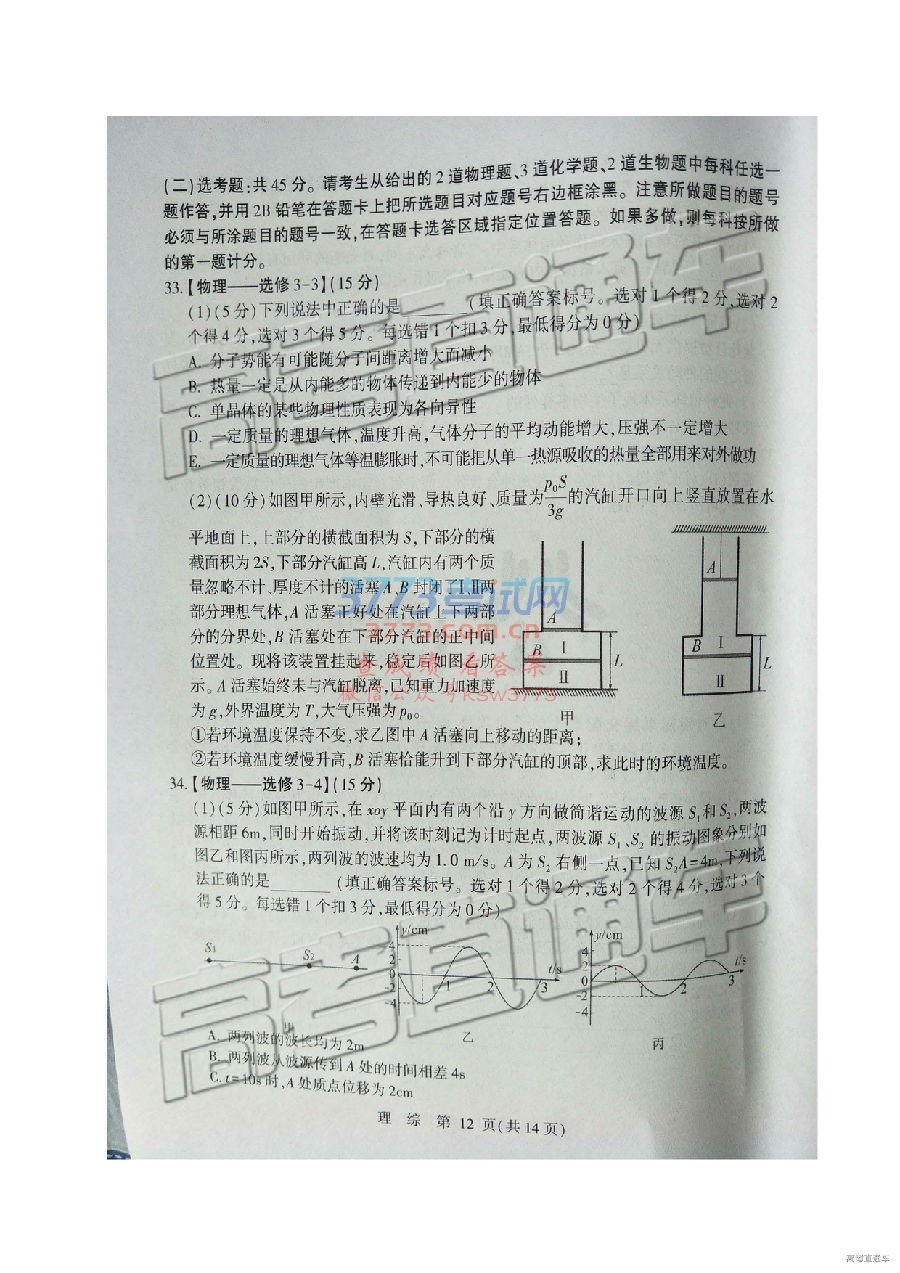 (二)选考题:共45分。请考生从给出的2道物理题、3道化学题、2道生物题中每科任选一
题作答,并用2B铅笔在答题卡上把所选题目对应题号右边框涂黑。注意所做题目的题号
必须与所涂题目的题号一致,在答题卡选答区域指定位置答题。如果多做,则每科按所做
的第一题计分。
33.【物理——选修3-3】(15分)
(1)(5分)下列说法中正确的是______(填正确答案标号。选对1个得2分,选对2
个得4分,选对3个得5分。每选错1个扣3分,最低得分为0分)
A. 分子势能有可能随分子间距离增大而减小
B. 热量一定是从内能多的物体传递到内能少的物体
C. 单晶体的某些物理性质表现为各向异性
D. 一定质量的理想气体,温度升高,气体分子的平均动能增大,压强不一定增大
E. 一定质量的理想气体等温膨胀时,不可能把从单一热源吸收的热量全部用来对外做功
(2)(10分)如图甲所示,内壁光滑、导热良好、质量为p₀S/3g的汽缸开口向上竖直放置在水
平地面上,上部分的横截面积为S,下部分的横
截面积为2S,下部分汽缸高L,汽缸内有两个质
量忽略不计、厚度不计的活塞A、B封闭了Ⅰ、Ⅱ两
部分理想气体,A活塞正好处在汽缸上下两部
分的分界处,B活塞处在下部分汽缸的正中间
位置处。现将该装置挂起来,稳定后如图乙所
示。A活塞始终未与汽缸脱离,已知重力加速度
为g,外界温度为T,大气压强为p₀。
A
B
Ⅰ
Ⅱ
L
甲
A
B
Ⅰ
Ⅱ
L
乙
①若环境温度保持不变,求乙图中A活塞向上移动的距离;
②若环境温度缓慢升高,B活塞恰能升到下部分汽缸的顶部,求此时的环境温度。
34.【物理——选修3-4】(15分)
(1)(5分)如图甲所示,在xoy平面内有两个沿y方向做简谐运动的波源S₁和S₂,两波
源相距6m,同时开始振动,并将该时刻记为计时起点,两波源S₁、S₂的振动图象分别如
图乙和图丙所示,两列波的波速均为1.0 m/s。A为S₂右侧一点,已知S₂A=4m,下列说
法正确的是______(填正确答案标号。选对1个得2分,选对2个得4分,选对3个
得5分。每选错1个扣3分,最低得分为0分)
S₁
S₂
A
甲
y/cm
4
2
0
-2
-4
1
2
3
t/s
乙
y/cm
4
2
0
-2
-4
1
2
3
t/s
丙
A. 两列波的波长均为2m
B. 两列波从波源传到A处的时间相差4s
C. t=10s时,A处质点位移为2cm
理 综 第 12 页(共14页)
高考直通车
3773考试网
3773.com.cn
查成绩 看答案
微信公众号ksw3773
高考直通车
高考直通车